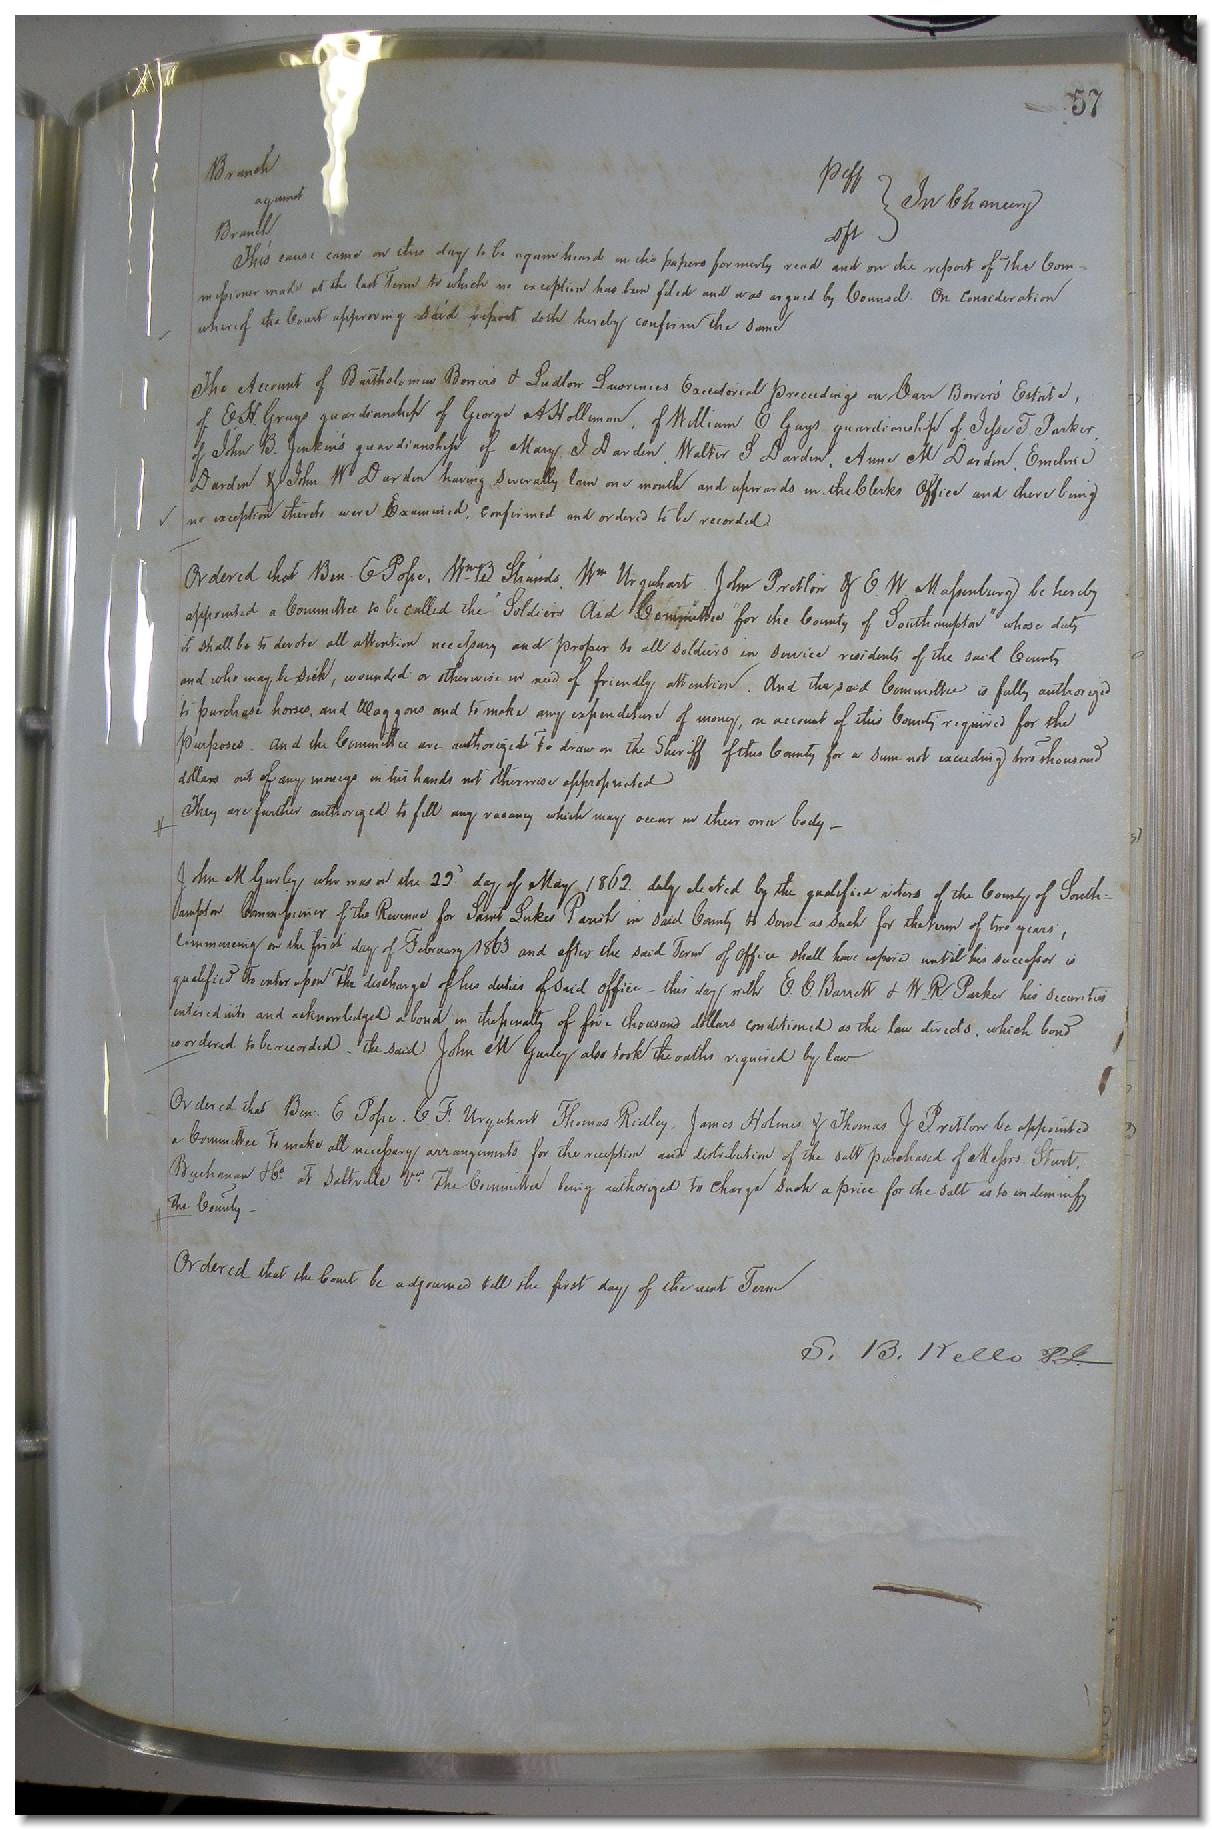 57
Branch
against
Branch
Plff
Dft
In Chancery
This cause came on this day to be again heard on the papers formerly read and on the report of the Com-
missioner made at the last Term to which no exception has been filed and was argued by Counsel. On Consideration
whereof the Court approving said report doth hereby confirm the same
The Account of Bartholomew &  Ludlow Lawrences Executorial proceedings on Estate,
of E. H. Grays guardianship of George A Holleman, of William E Gays guardianship of Jesse T Parker,
of John B. Jenkins guardianship of Mary I Darden Walter S Darden, Anne M Darden, Emeline
Darden & John W Darden having severally lain one month and upwards in the Clerks Office and there being
no exception thereto were Examined, confirmed and ordered to be recorded
Ordered that Ben. E Pope, Wm B Shands, Wm Urquhart John Pretlow & E. W Massenburg be hereby
appointed a Committee to be called the "Soldiers Aid Committee for the County of Southampton" whose duty
it shall be to devote all attention necessary and proper to all soldiers in service residents of the said County
and who may be sick, wounded or otherwise in need of friendly attention. And the said Committee is fully authorized
to purchase horses, and Waggons and to make any expenditure of money, on account of this County required for the
purposes. And the Committee are authorized to draw on the Sheriff of this County for a sum not exceeding two thousand
dollars out of any moneys in his hands not otherwise appropriated
They are further authorized to fill any vacancy which may occur in their own body -
John M Gurley who was on the 22d day of May 1862 duly elected by the qualified voters of the County of South-
ampton Commissioner of the Revenue for Saint Lukes Parish in said County to serve as such for the term of two years,
Commencing on the first day of February 1863 and after the said Term of Office shall have expired until his successor is
qualified to enter upon the discharge of his duties of said office - this day with E. C. Barrett & W. R Parker his securities
entered into and acknowledged a bond in the penalty of five thousand dollars conditioned as the law directs, which bond
is ordered to be recorded - the said John M Gurley also took the oaths required by law
Ordered that Ben. E Pope. C F. Urquhart Thomas Ridley, James Holmes & Thomas J Pretlow be appointed
a Committee to make all necessary arrangements for the reception and distribution of the salt purchased of Messrs Stuart,
Buchanan & Co. at Saltville Va. The Committee being authorized to charge such a price for the salt as to indemnify
the County -
Ordered that the Court be adjourned till the first day of the next Term
S. B. Kello P.J.